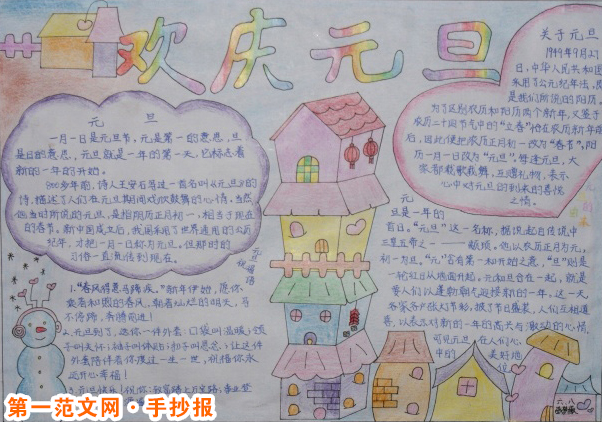 欢庆元旦
元 旦
一月一日是元旦节,元是第一的意思,旦
是日的意思,元旦就是一年的第一天,它标志着
新的一年的开始。
900多年前,诗人王安石写过一首名叫《元旦》的
诗,描述了人们在元旦期间欢欣鼓舞的心情,当然
他当时所说的元旦,是指阴历正月初一,相当于现在
的春节,新中国成立后,我国采用了世界通用的公历
纪年,才把一月一日称为元旦,但那时的
习俗一直流传到现在。
元旦祝福语
1."春风得意马蹄疾。"新年伊始,愿你
乘着和煦的春风,朝着灿烂的明天,马
不停蹄,奔腾前进!
2.元旦到了,送你一件外套:口袋叫温暖;领
子叫关怀;袖子叫体贴;扣子叫思念;让这件
外套陪伴着你渡过一生一世,祝福你永
远开心幸福!
3.元旦快乐!祝你:致富踏上万宝路;事业登
关于元旦
1949年9月27
日,中华人民共和国
采用了公元纪年法,即
是我们所说的阳历,
为了区别农历和阳历两个新年,又鉴于
农历二十四节气中的"立春"恰在农历新年前
后,因此便把农历正月初一改为"春节",阳
历一月一日改为"元旦"。每逢元旦,大
家都载歌载舞,互赠礼物,表示
心中对元旦的到来的喜悦
之情。
元
旦是一年的
首日,"元旦"这一名称,据说起自传说中
三皇五帝之一——颛顼,他以农历正月为元,
初一为旦,"元"含有第一和开始之意,"旦"贻是
一轮红日从地面升起,元和旦合在一起,就是
要人们以蓬勃朝气迎接新的一年,这一天
各家各户张灯节彩,披了节日盛装,人们互相道
喜,以表达对新的一年的高兴与激动的心情,
可见元旦 在人们心
中的 美好地
位
六.八
第一范文网·手抄报